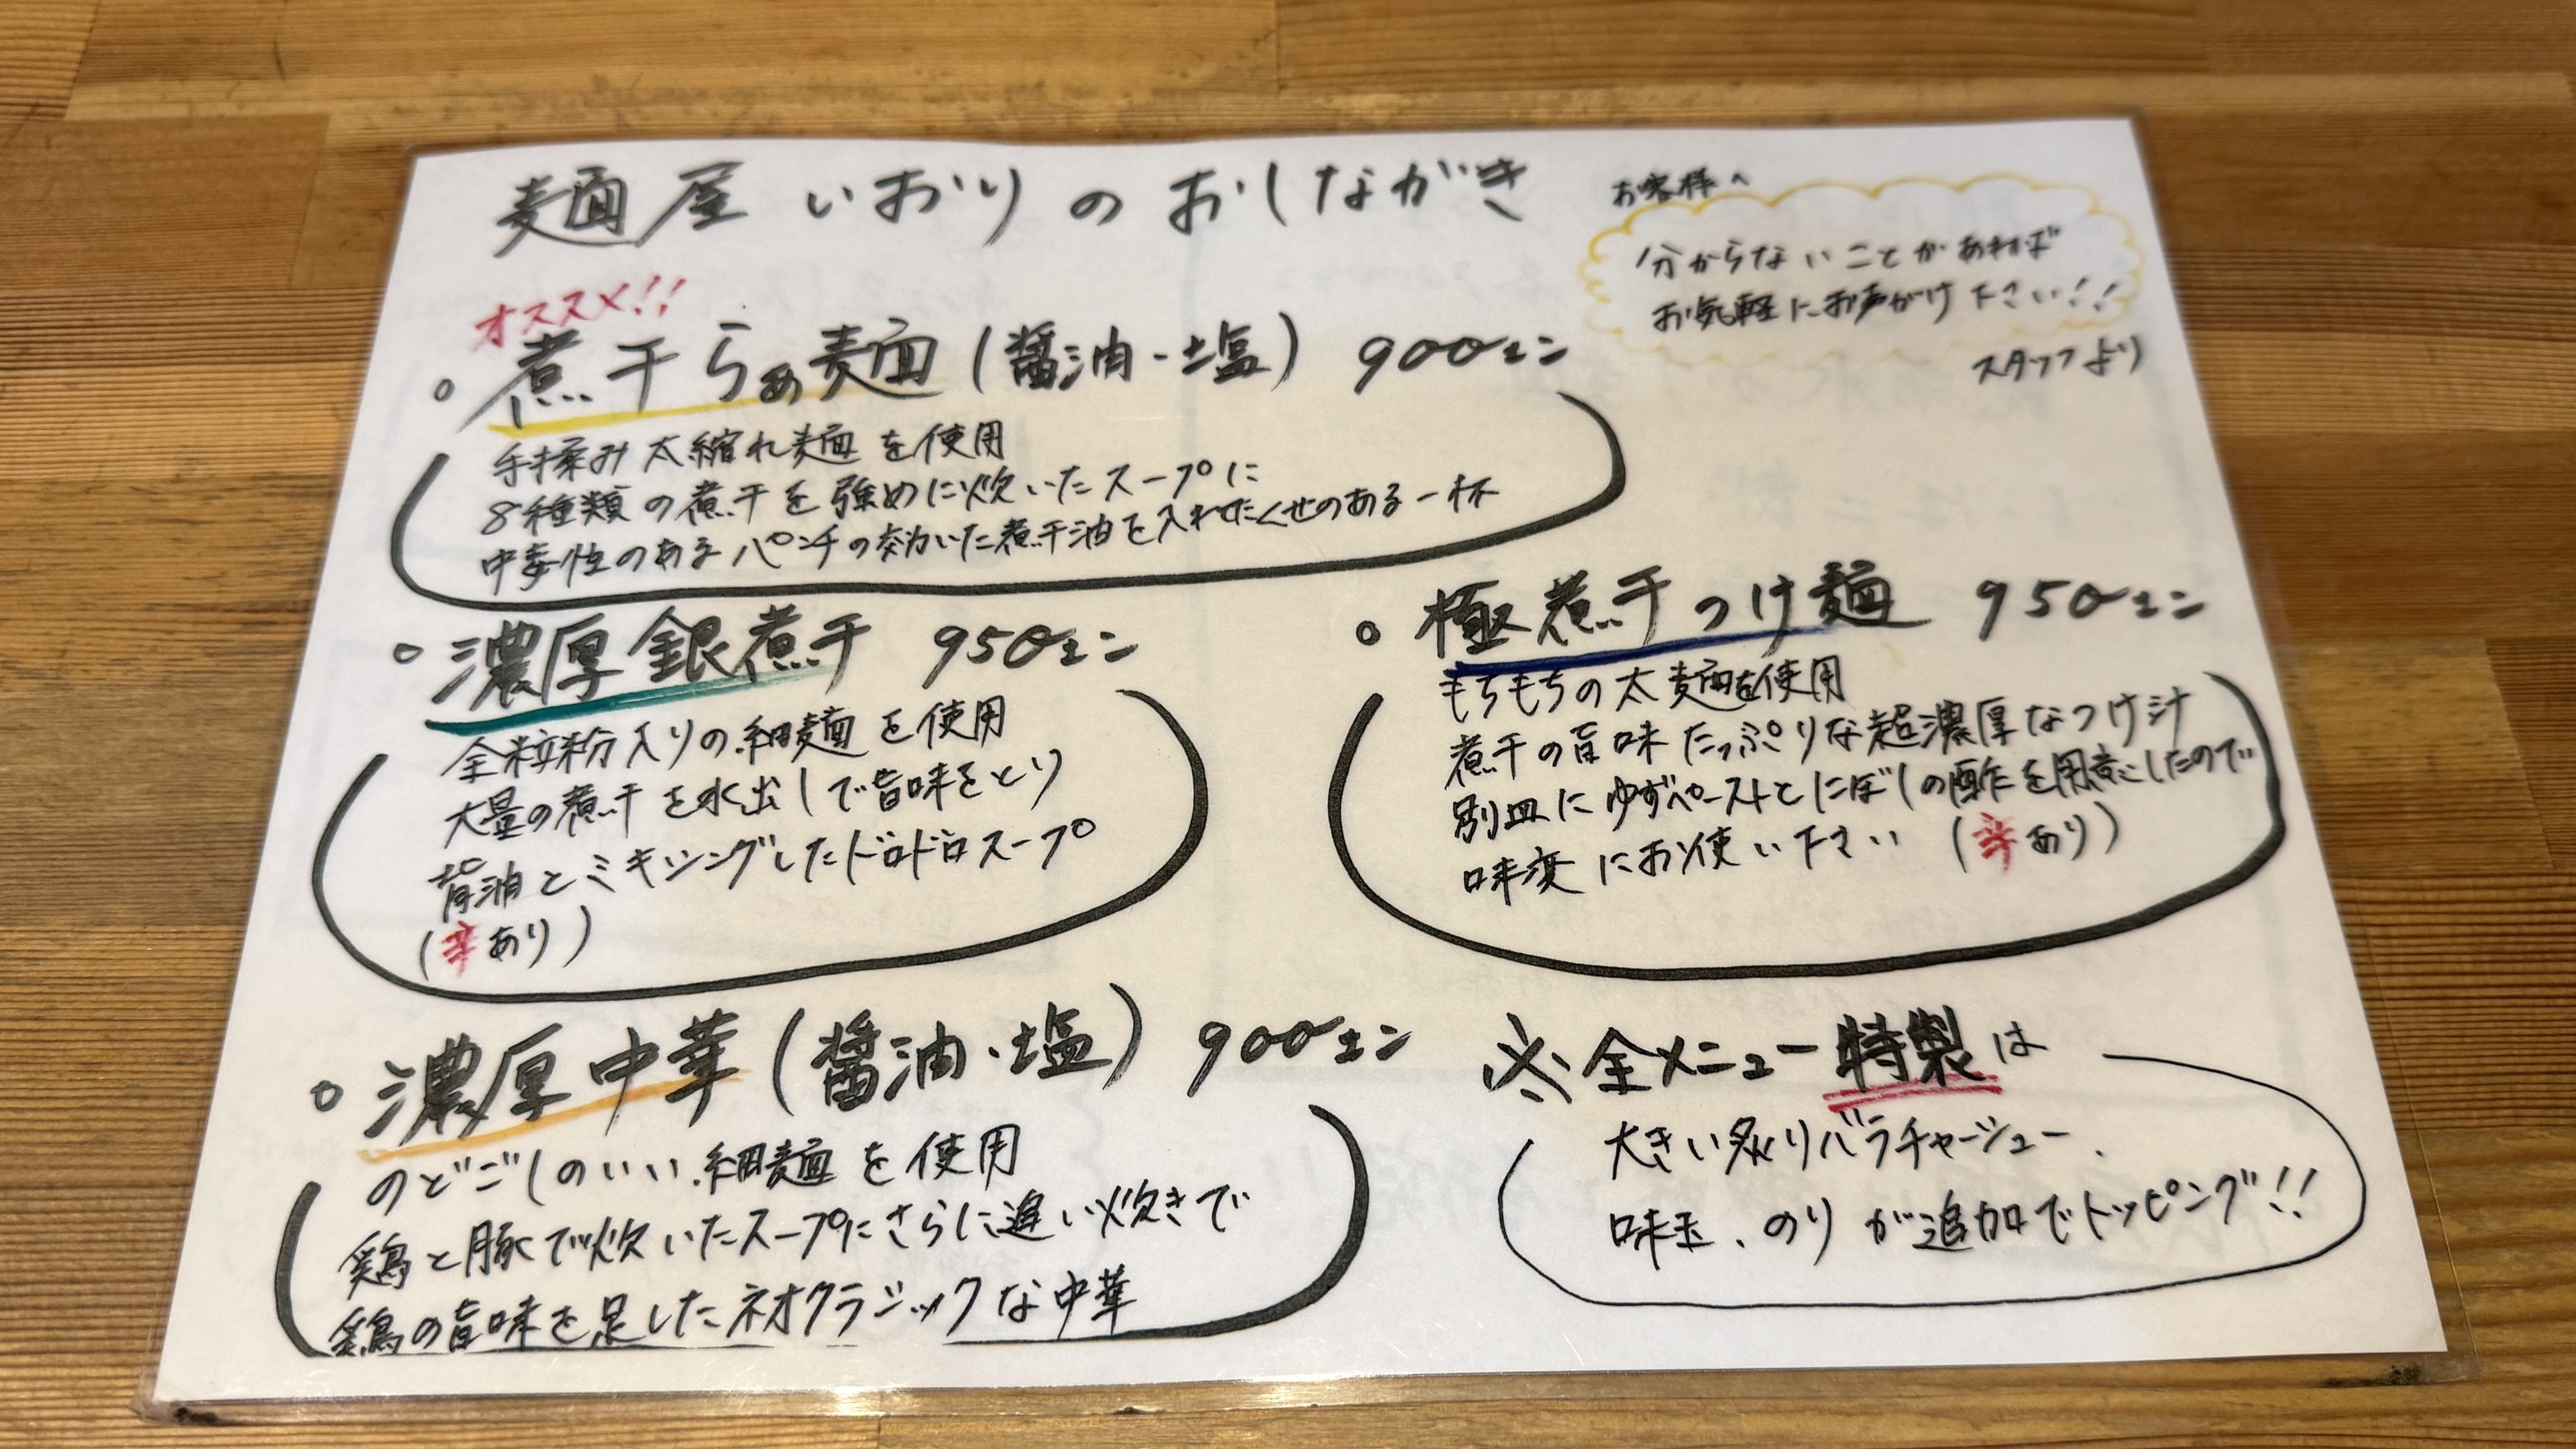 麺屋 いおりのおしながき
お客様へ
分からないことがあれば
お気軽にお声がけ下さい!!
スタッフより
オススメ!!
○ 煮干らぁ麺(醤油・塩) 900エン
手揉み太縮れ麺を使用
8種類の煮干を強めに炊いたスープに
中毒性のあるパンチの効いた煮干油を入れたくせのある一杯
○ 濃厚銀煮干 950エン
全粒粉入りの細麺を使用
大量の煮干を水出しで旨味をとり
背油とミキシングしたドロドロスープ
(辛あり)
○ 極煮干つけ麺 950エン
もちもちの太麺を使用
煮干の旨味たっぷりな超濃厚なつけ汁
別皿にゆずペーストとにぼしの酢を用意したので
味変にお使い下さい (辛あり)
○ 濃厚中華(醤油・塩) 900エン
のどごしのいい細麺を使用
鶏と豚で炊いたスープにさらに追い炊きで
鶏の旨味を足したネオクラシックな中華
※全メニュー特製は
大きい炙りバラチャーシュー、
味玉、のりが追加でトッピング!!